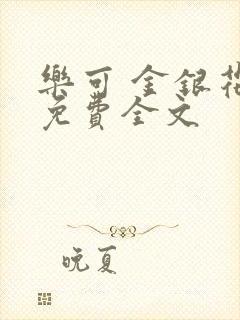 樂可 金銀花
免費全文
晚夏